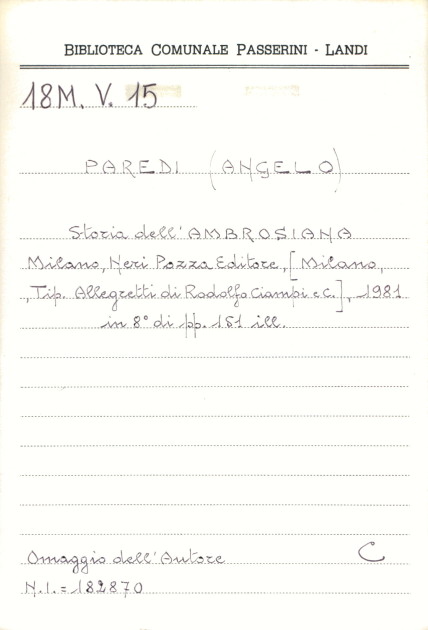 BIBLIOTECA COMUNALE PASSERINI - LANDI
18M. V. 15
PAREDI (ANGELO)
Storia dell'AMBROSIANA
Milano, Neri Pozza Editore, [Milano,
Tip. Allegretti di Rodolfo Ciampi e C.], 1981
in 8° di pp. 151 ill.
Omaggio dell'Autore C
N.I. = 182870